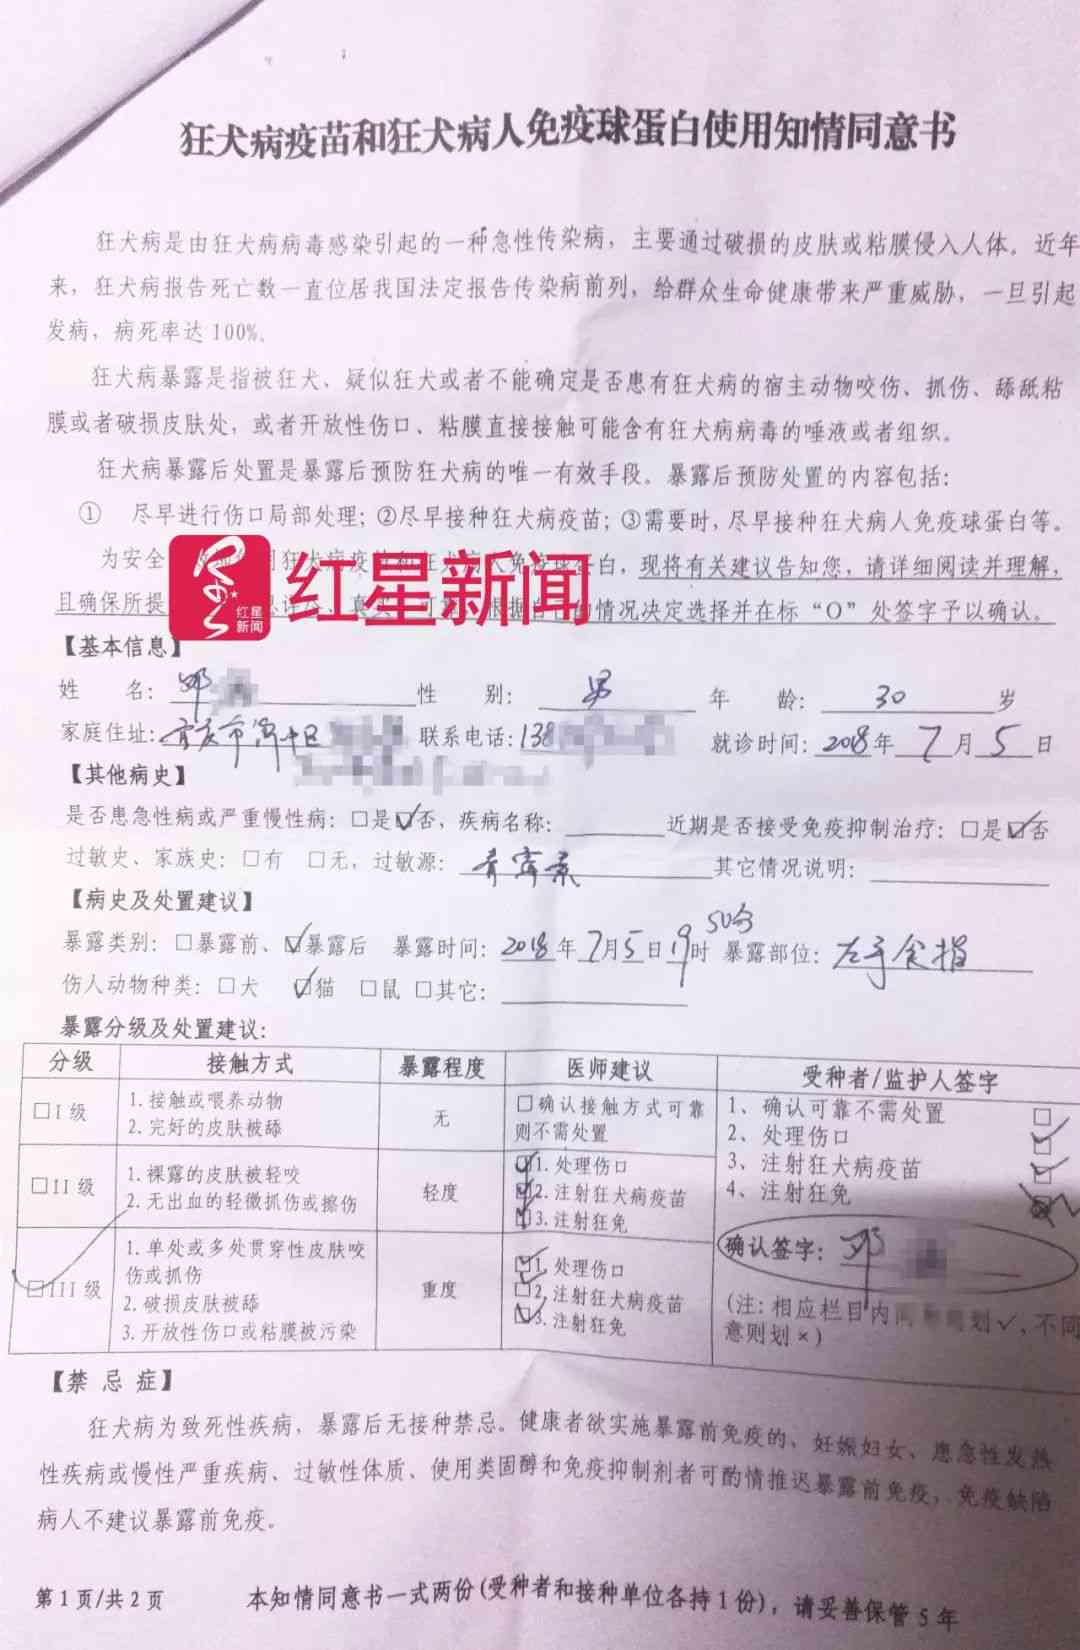 狂犬病疫苗和狂犬病人免疫球蛋白使用知情同意书
狂犬病是由狂犬病病毒感染引起的一种急性传染病，主要通过破损的皮肤或粘膜侵入人体。近年
来，狂犬病报告死亡数一直位居我国法定报告传染病前列，给群众生命健康带来严重威胁，一旦引起
发病，病死率达 100%。
狂犬病暴露是指被狂犬、疑似狂犬或者不能确定是否患有狂犬病的宿主动物咬伤、抓伤、舔舐粘
膜或者破损皮肤处，或者开放性伤口、粘膜直接接触可能含有狂犬病病毒的唾液或者组织。
狂犬病暴露后处置是暴露后预防狂犬病的唯一有效手段。暴露后预防处置的内容包括：
① 尽早进行伤口局部处理；②尽早接种狂犬病疫苗；③需要时，尽早接种狂犬病人免疫球蛋白等。
为安全 蛋白，现将有关建议告知您，请详细阅读并理解，
且确保所提 情况决定选择并在标“O”处签字予以确认。
红星新闻
红星
新闻
【基本信息】
姓 名：邓 性 别：男 年 龄：30 岁
家庭住址： 联系电话：138 就诊时间：2018年 7 月 5 日
【其他病史】
是否患急性病或严重慢性病：□是☑否，疾病名称： 近期是否接受免疫抑制治疗：□是☑否
过敏史、家族史：□有 □无，过敏源：青霉素 其它情况说明：
【病史及处置建议】
暴露类别：□暴露前、☑暴露后 暴露时间：2018年7月5日19时50分 暴露部位：左手食指
伤人动物种类：□犬 ☑猫 □鼠 □其它：
暴露分级及处置建议：
分级 接触方式 暴露程度 医师建议 受种者/监护人签字
□I 级
1. 接触或喂养动物
2. 完好的皮肤被舔
无
□确认接触方式可靠
则不需处置
□II 级
1. 裸露的皮肤被轻咬
2. 无出血的轻微抓伤或擦伤
轻度
☑1. 处理伤口
☑2. 注射狂犬病疫苗
☑3. 注射狂免
☑III 级
1. 单处或多处贯穿性皮肤咬
伤或抓伤
2. 破损皮肤被舔
3. 开放性伤口或粘膜被污染
重度
☑1. 处理伤口
☑2. 注射狂犬病疫苗
☑3. 注射狂免
1、确认可靠不需处置 □
2、处理伤口 ☑
3、注射狂犬病疫苗 ☑
4、注射狂免 ☒
确认签字：邓
(注：相应栏目内 划✓，不同
意则划×)
【禁 忌 症】
狂犬病为致死性疾病，暴露后无接种禁忌。健康者欲实施暴露前免疫的、妊娠妇女、患急性发热
性疾病或慢性严重疾病、过敏性体质、使用类固醇和免疫抑制剂者可酌情推迟暴露前免疫，免疫缺陷
病人不建议暴露前免疫。
第 1 页/共 2 页 本知情同意书一式两份(受种者和接种单位各持 1 份)，请妥善保管 5 年